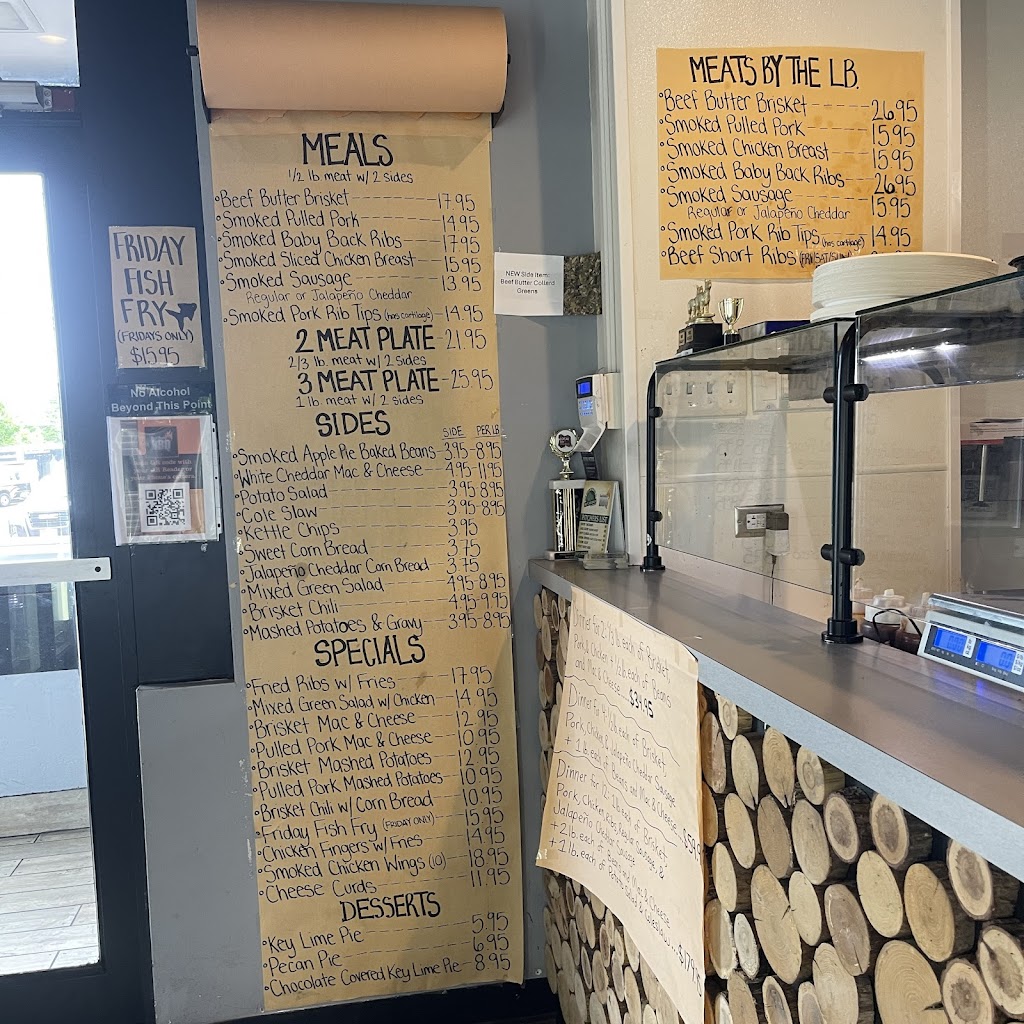 MEALS
1/2 lb meat w/ 2 sides
•Beef Butter Brisket 17.95
•Smoked Pulled Pork 14.95
•Smoked Baby Back Ribs 17.95
•Smoked Sliced Chicken Breast 15.95
•Smoked Sausage 13.95
Regular or Jalapeño Cheddar
•Smoked Pork Rib Tips (has cartilage) 14.95
2 MEAT PLATE 21.95
2/3 lb. meat w/ 2 sides
3 MEAT PLATE 25.95
1 lb. meat w/ 2 sides
SIDES
SIDE PER LB
•Smoked Apple Pie Baked Beans 3.95-8.95
•White Cheddar Mac & Cheese 4.95-11.95
•Potato Salad 3.95-8.95
•Cole Slaw 3.95-8.95
•Kettle Chips 3.95
•Sweet Corn Bread 3.75
•Jalapeño Cheddar Corn Bread 3.75
•Mixed Green Salad 4.95-8.95
•Brisket Chili 4.95-9.95
•Mashed Potatoes & Gravy 3.95-8.95
SPECIALS
•Fried Ribs w/ Fries 17.95
•Mixed Green Salad w/ Chicken 14.95
•Brisket Mac & Cheese 12.95
•Pulled Pork Mac & Cheese 10.95
•Brisket Mashed Potatoes 12.95
•Pulled Pork Mashed Potatoes 10.95
•Brisket Chili w/ Corn Bread 10.95
•Friday Fish Fry (FRIDAY ONLY) 15.95
•Chicken Fingers w/ Fries 14.95
•Smoked Chicken Wings (10) 18.95
•Cheese Curds 11.95
DESSERTS
•Key Lime Pie 5.95
•Pecan Pie 6.95
•Chocolate Covered Key Lime Pie 8.95
FRIDAY
FISH
FRY
(FRIDAYS ONLY)
$15.95
No Alcohol
Beyond This Point
NEW Side Item:
Beef Butter Collard
Greens
MEATS BY THE LB.
•Beef Butter Brisket 26.95
•Smoked Pulled Pork 15.95
•Smoked Chicken Breast 15.95
•Smoked Baby Back Ribs 26.95
•Smoked Sausage 15.95
Regular or Jalapeño Cheddar
•Smoked Pork Rib Tips (has cartilage) 14.95
•Beef Short Ribs (FRI/SAT/SUN)
Dinner for 2: 1/3 lb. each of Brisket,
Pork, & Chicken + 1/2 lb. each of Beans
and Mac & Cheese $39.95
Dinner for 4: 1/2 lb. each of Brisket,
Pork, Chicken, & Jalapeño Cheddar Sausage
+ 1 lb. each of Beans and Mac & Cheese
Dinner for 12: 2 lb. each of Brisket,
Pork, Chicken, Ribs, Regular Sausage, &
Jalapeño Cheddar Sausage
+ 2 lb. each of Beans and Mac & Cheese
+ 1 lb. each of Potato Salad & Coleslaw